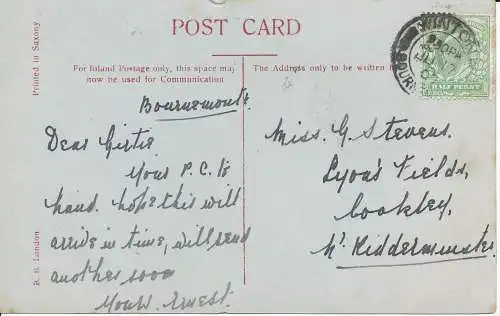 POST CARD
Printed in Saxony
For Inland Postage only, this space may
now be used for Communication
The Address only to be written
WINTON
BOURN
HALF PENNY
Bournemouth
Dear Girtie
Yours P.C. to
hand. hope this will
arrive in time, will send
another soon
Yours. Ernest.
Miss. G. Stevens.
Lyons Fields,
Cookley,
Nr. Kidderminster.
London